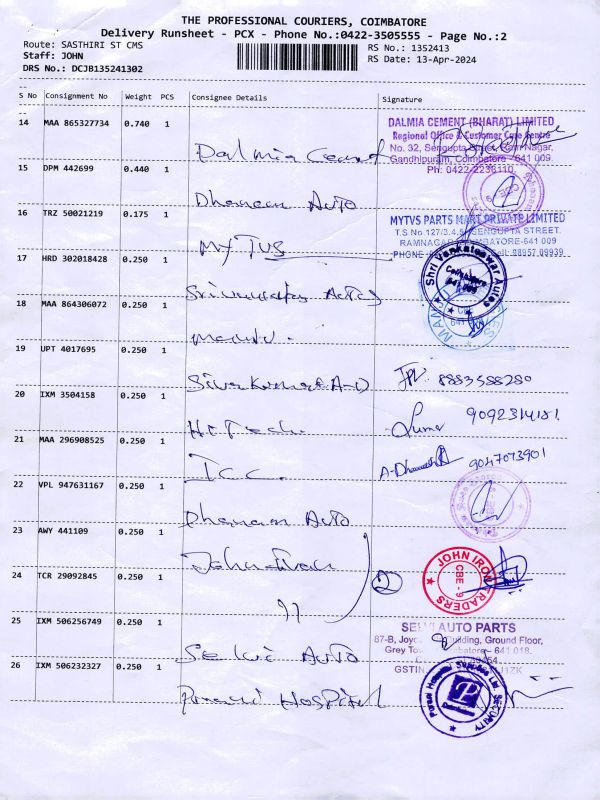 THE PROFESSIONAL COURIERS, COIMBATORE
Delivery Runsheet - PCX - Phone No.:0422-3505555 - Page No.:2
Route: SASTHIRI ST CMS
RS No.: 1352413
Staff: JOHN
RS Date: 13-Apr-2024
DRS No.: DCJB135241302
S No Consignment No Weight PCS Consignee Details Signature
14 MAA 865327734 0.740 1
DALMIA CEMENT (BHARAT) LIMITED
Regional Office & Customer Care Centre
No. 32, Sengupta Street, Ram Nagar,
Gandhipuram, Coimbatore - 641 009.
Ph: 0422-2236110.
Dalmia Cement
15 DPM 442699 0.440 1
Dhanam Auto
16 TRZ 50021219 0.175 1
MYTVS PARTS MART PRIVATE LIMITED
T.S No.127/3.4.5, SENGUPTA STREET.
RAMNAGAR COIMBATORE-641 009
PHONE Cell: 88057 09939
My TVS
17 HRD 302018428 0.250 1
Shri Venkateswar Autos
Coimbatore
Autos
18 MAA 864306072 0.250 1
19 UPT 4017695 0.250 1
Sivakumar A-D
8883588280
20 IXM 3504158 0.250 1
Hi Tech
9092314181
21 MAA 296908525 0.250 1
T.C.C.
9047073901
22 VPL 947631167 0.250 1
Dhanam Auto
23 AWY 441109 0.250 1
John Iron
JOHN IRON TRADERS
CBE - 9
24 TCR 29092845 0.250 1
2
"
25 IXM 506256749 0.250 1
SELVI AUTO PARTS
87-B, Building, Ground Floor,
Coimbatore - 641 018.
GSTIN
Selvi Auto
26 IXM 506232327 0.250 1
Hospital
SECURITY